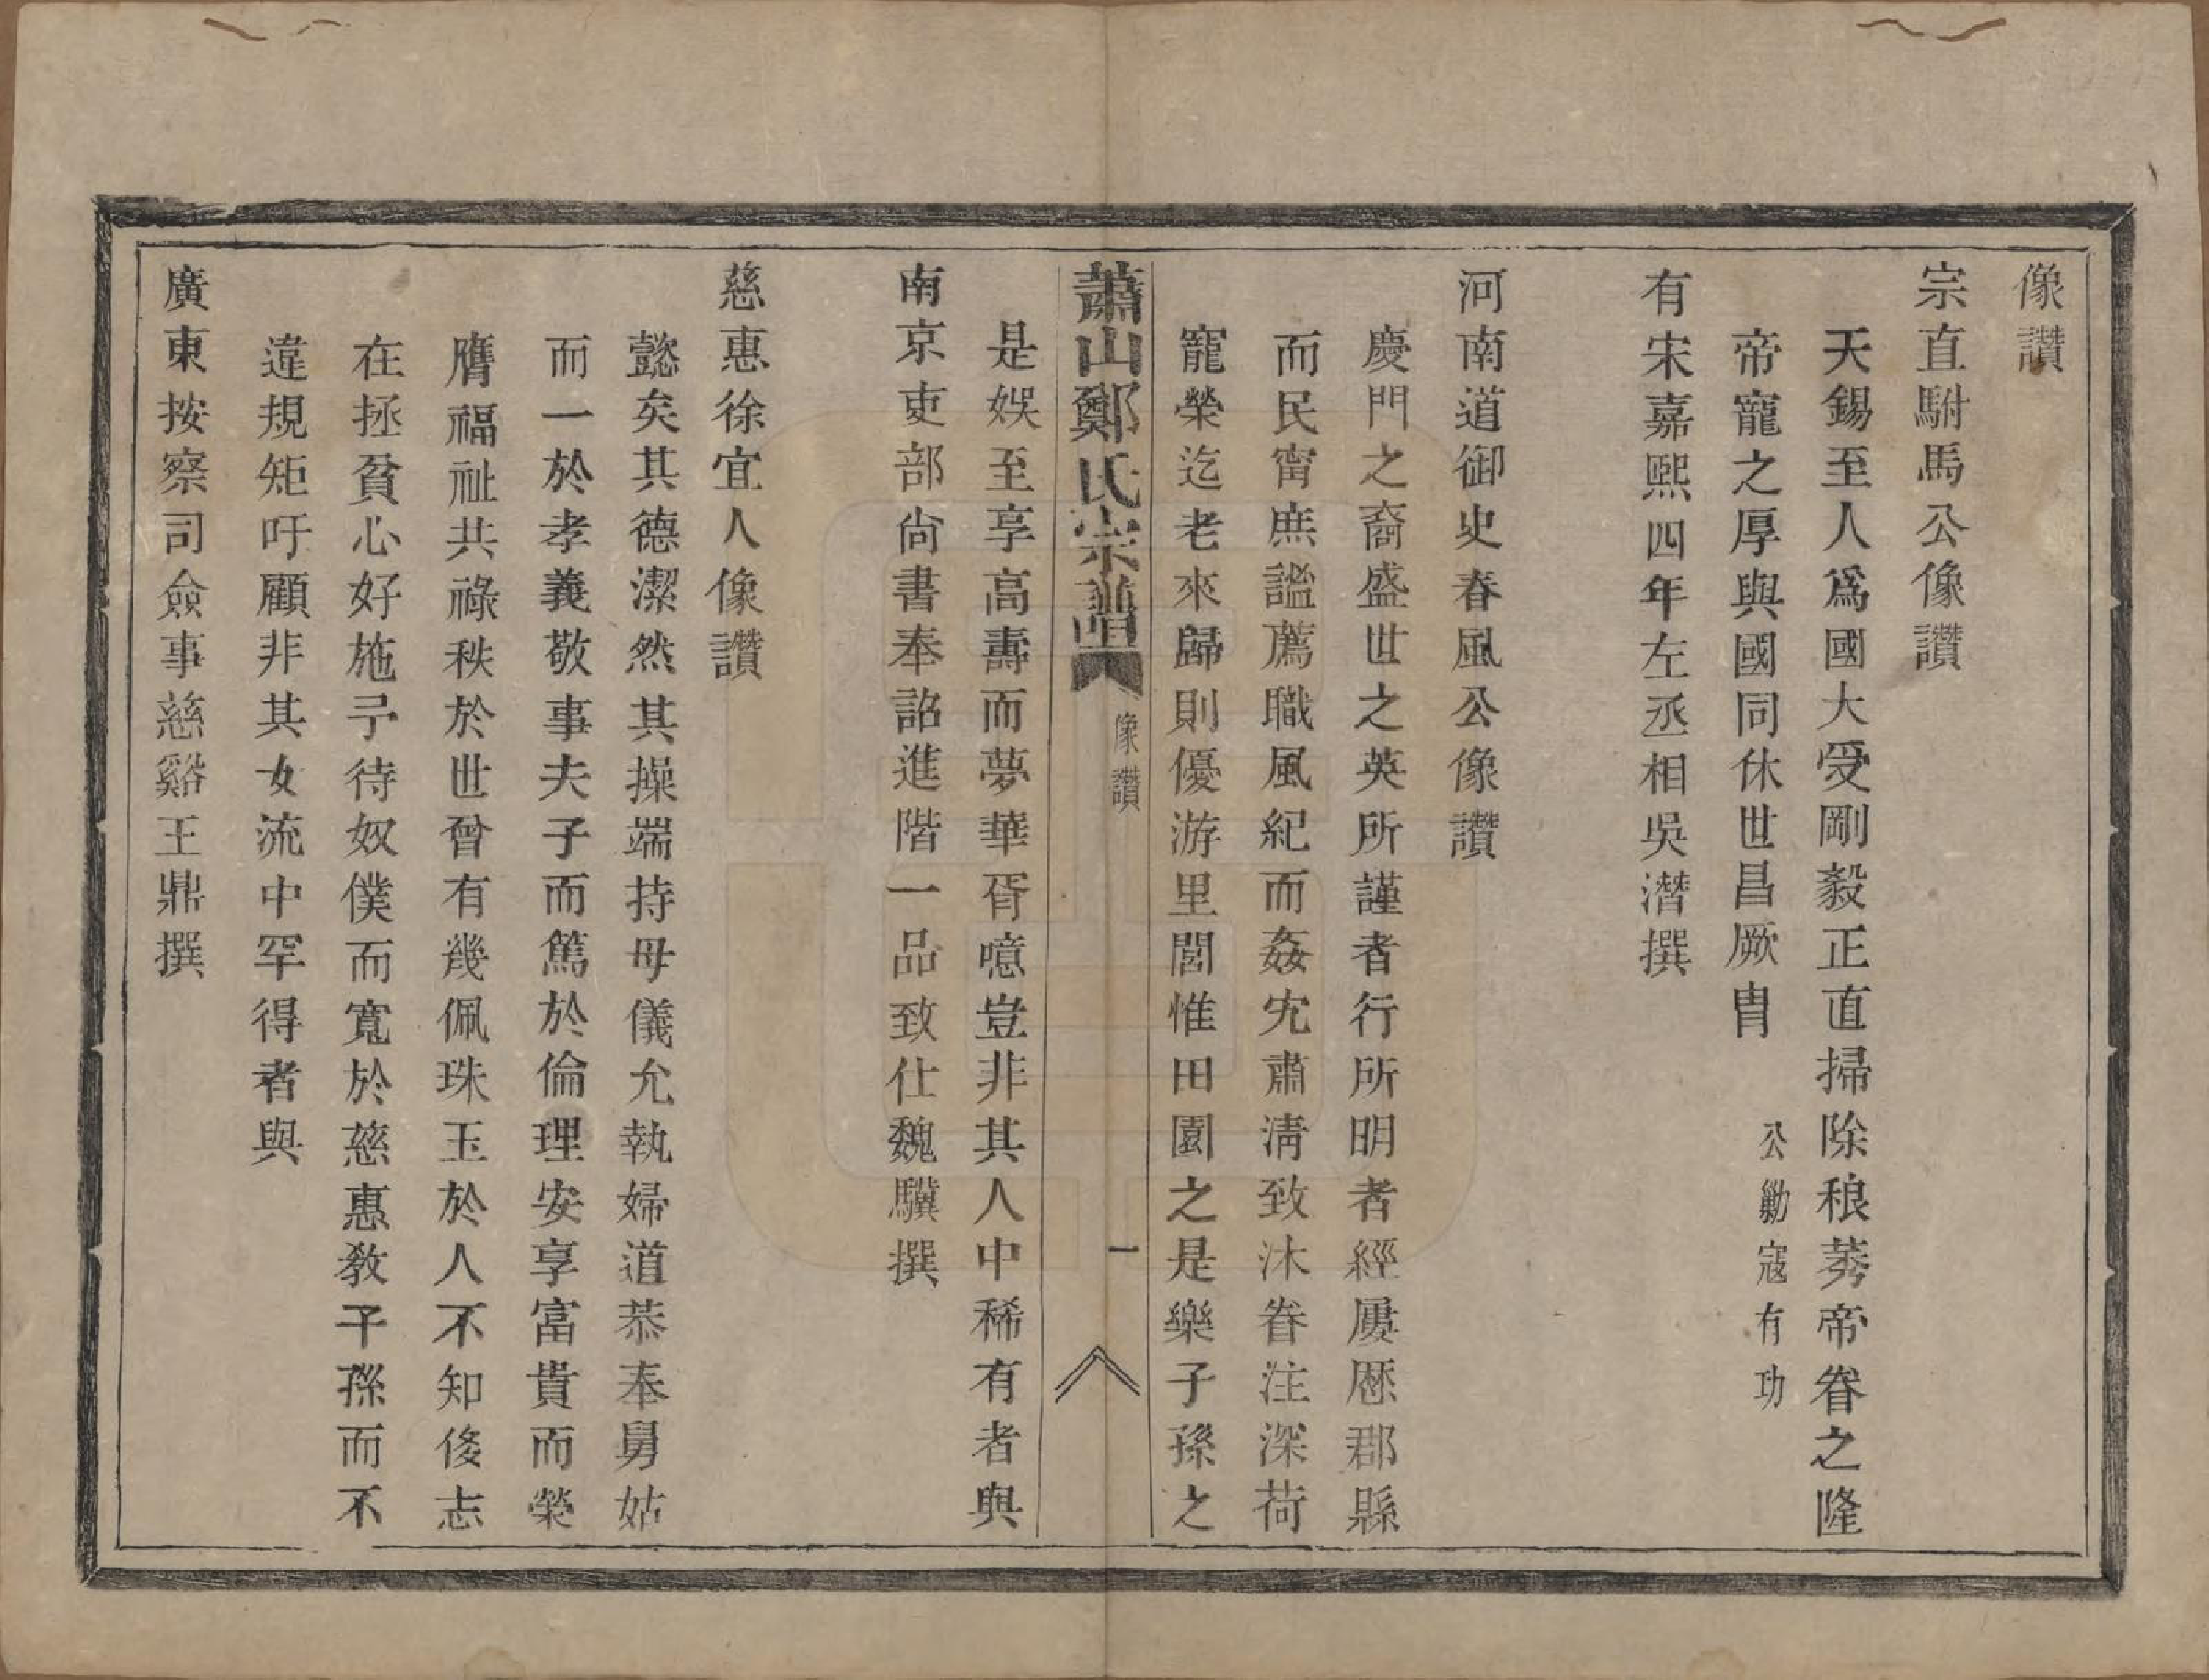 像讚
宗直駙馬公像讚
天錫至人爲國大受剛毅正直掃除稂莠帝眷之隆
帝寵之厚與國同休世昌厥胄 公勦寇有功
有宋嘉熙四年左丞相吳潛撰
河南道御史春風公像讚
慶門之裔盛世之英所謹者行所明者經屢歷郡縣
而民甯庶謐薦職風紀而姦宄肅淸致沐眷注深荷
寵榮迄老來歸則優游里閭惟田園之是樂子孫之
蕭山鄭氏宗譜 像讚 一
是娛至享高壽而夢華胥噫豈非其人中稀有者與
南京吏部尙書奉詔進階一品致仕魏驥撰
慈惠徐宜人像讚
懿矣其德潔然其操端持母儀允執婦道恭奉舅姑
而一於孝義敬事夫子而篤於倫理安享富貴而榮
膺福祉共祿秩於世曾有幾佩珠玉於人不知後志
在拯貧心好施予待奴僕而寬於慈惠敎子孫而不
違規矩吁顧非其女流中罕得者與
廣東按察司僉事慈谿王鼎撰